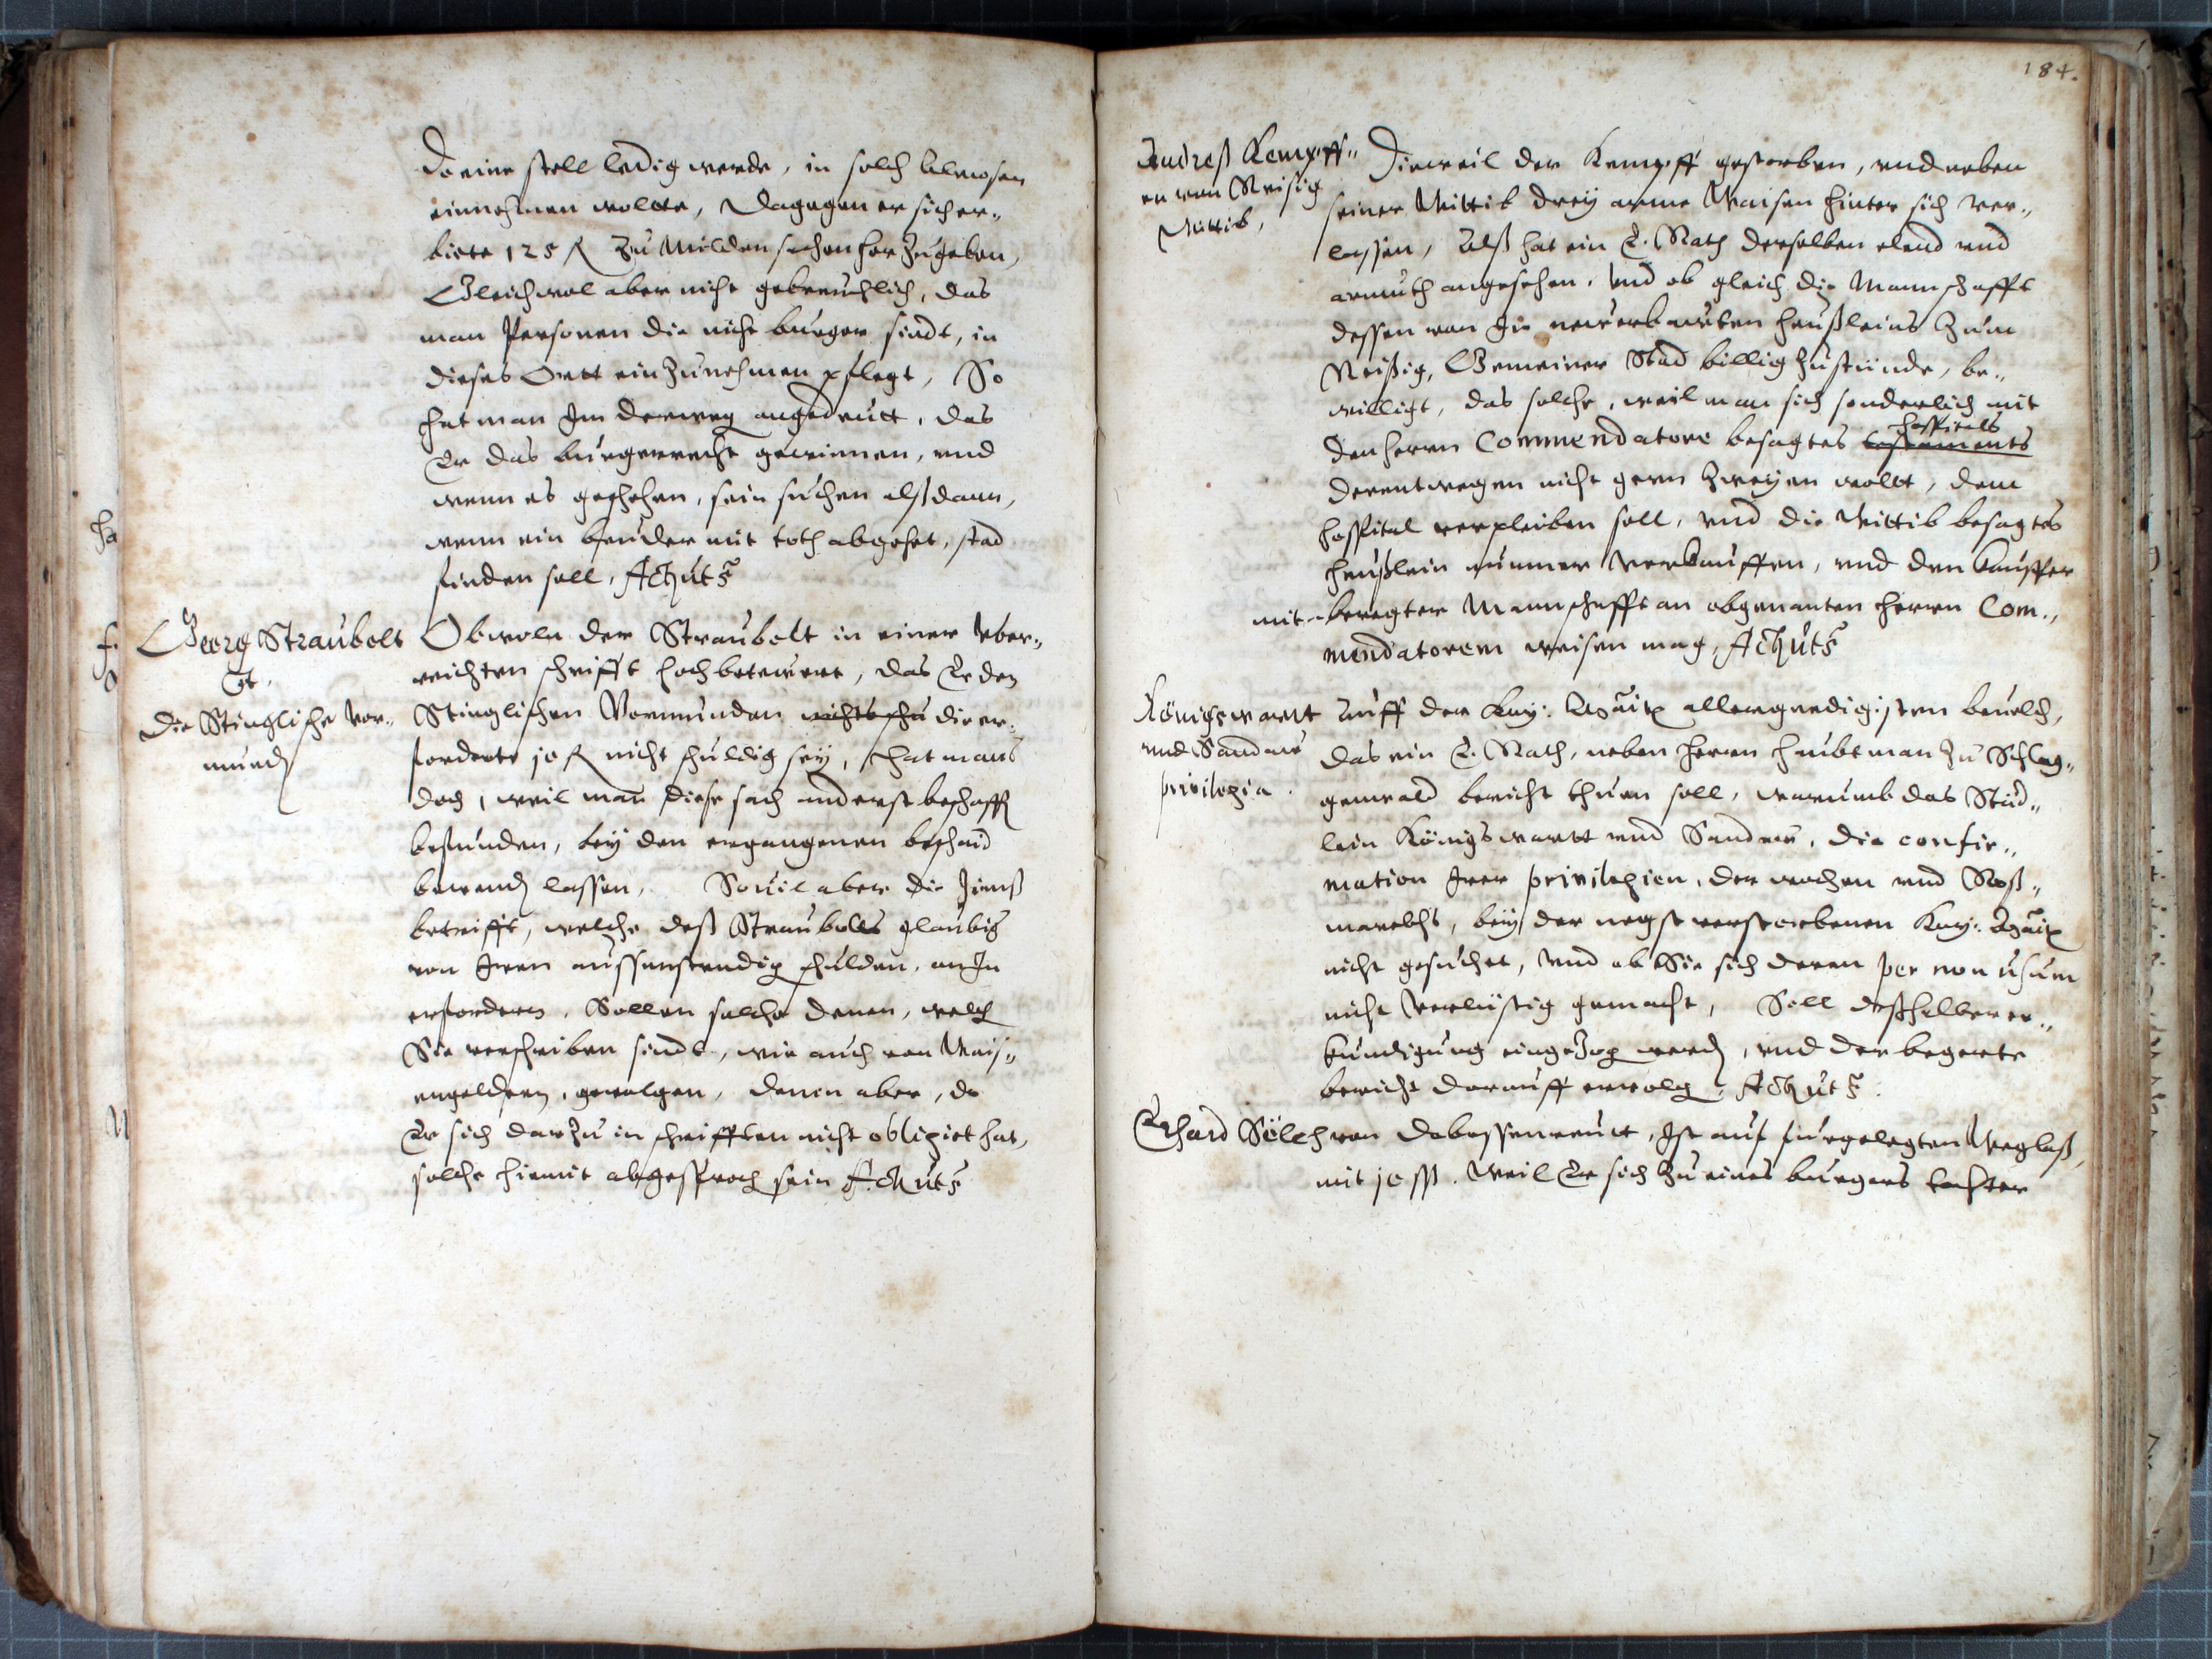 Do eine stell ledig werde, in solch Almosen
einnehmen wolte, Dagegen er sich er„
biete 125 fl zu Milden sachen herzugeben,
Gleichwol aber nicht gebreuchlich, das
man Personen die nicht burger sindt, in
dieses Ortt einzunehmen pflegt, So
hat man Im derweg angedeutt, das
Er das burgerrecht gewinnen, vnd
wenn es geschehen, sein suchen alßdann,
wenn ein bruder mit toth abgehet, stad
finden soll, Act. ut s.
Georg Straubolt
Ct.
Die Stinglische Vor„
mund
Obwoln der Straubolt in einer vber„
reichten schrifft hoch betewert, das Er den
Stinglischen Vormunden nichts schu die er„
forderte 10 fl nicht schuldig sey, hat mans
doch, weil man diese sach anderst beschaff
befunden, bey den ergangenen beschaid
bewend lassen, Souil aber die Zinnß
betrifft, welche deß Straubolts glaubig
von Iren aussenstendig schulden, an In
erfordern, Sollen solche denen, welch
Sie verschriben sindt, wie auch von Wais„
engeldern, gevolgen, denen aber, do
Er sich darzu in schrifften nicht obligiet hat,
solche hiemit abgesproch sein Act. ut s.
184.
Andreß Kempff„
en von Neisig
Wittib,
Dieweil der Kempff gestorben, vnd neben
seiner Wittib drey arme Waisen hinter sich ver„
lassen, Alß hat ein E. Rath derselben elend vnd
armuth angesehen, Vnd ob gleich die Mannschafft
dessen von Ir newerbauten heußleins zum
Neisig, Gemeiner Stad billig zustünde, be„
willigt, das solche, weil man sich sonderlich mit
den herrn Commendatore besagtes testaments hospitals
derentwegen nicht gern zweyen wollt, dem
hospital verpleiben soll, vnd die Wittib besagtes
heußlein nunmer verkauffen, vnd den kauffer
mit beregter Mannschafft an obgenanten herrn Com„
mendatorem weisen mag, Act. ut s.
Königswartt
vnd Sandaw
privilegia.
Auff der Kay: Maüt allergnedigisten beuelch,
das ein E. Rath, neben herrn haubtman zu Schlag„
genwald bericht thuen soll, warumb das Städ„
lein Königswartt vnd Sandaw, die confir„
mation Irer privilegien, der wochen vnd Roß„
marckht, bey der negst verstorbenen Kay: Maüt
nicht gesuchet, Vnd ob Sie sich deren per non usum
nicht verlüstig gemacht, Soll deßhalben er„
kundigung eingezog werd, vnd der begerte
bericht darauff ervolg, Act. ut s.
Erhard Sölch von Dobassenreutt, Ist auf furgelegten Weglaß,
mit 10 ßß. weil Er sich zu eines burgers tochter